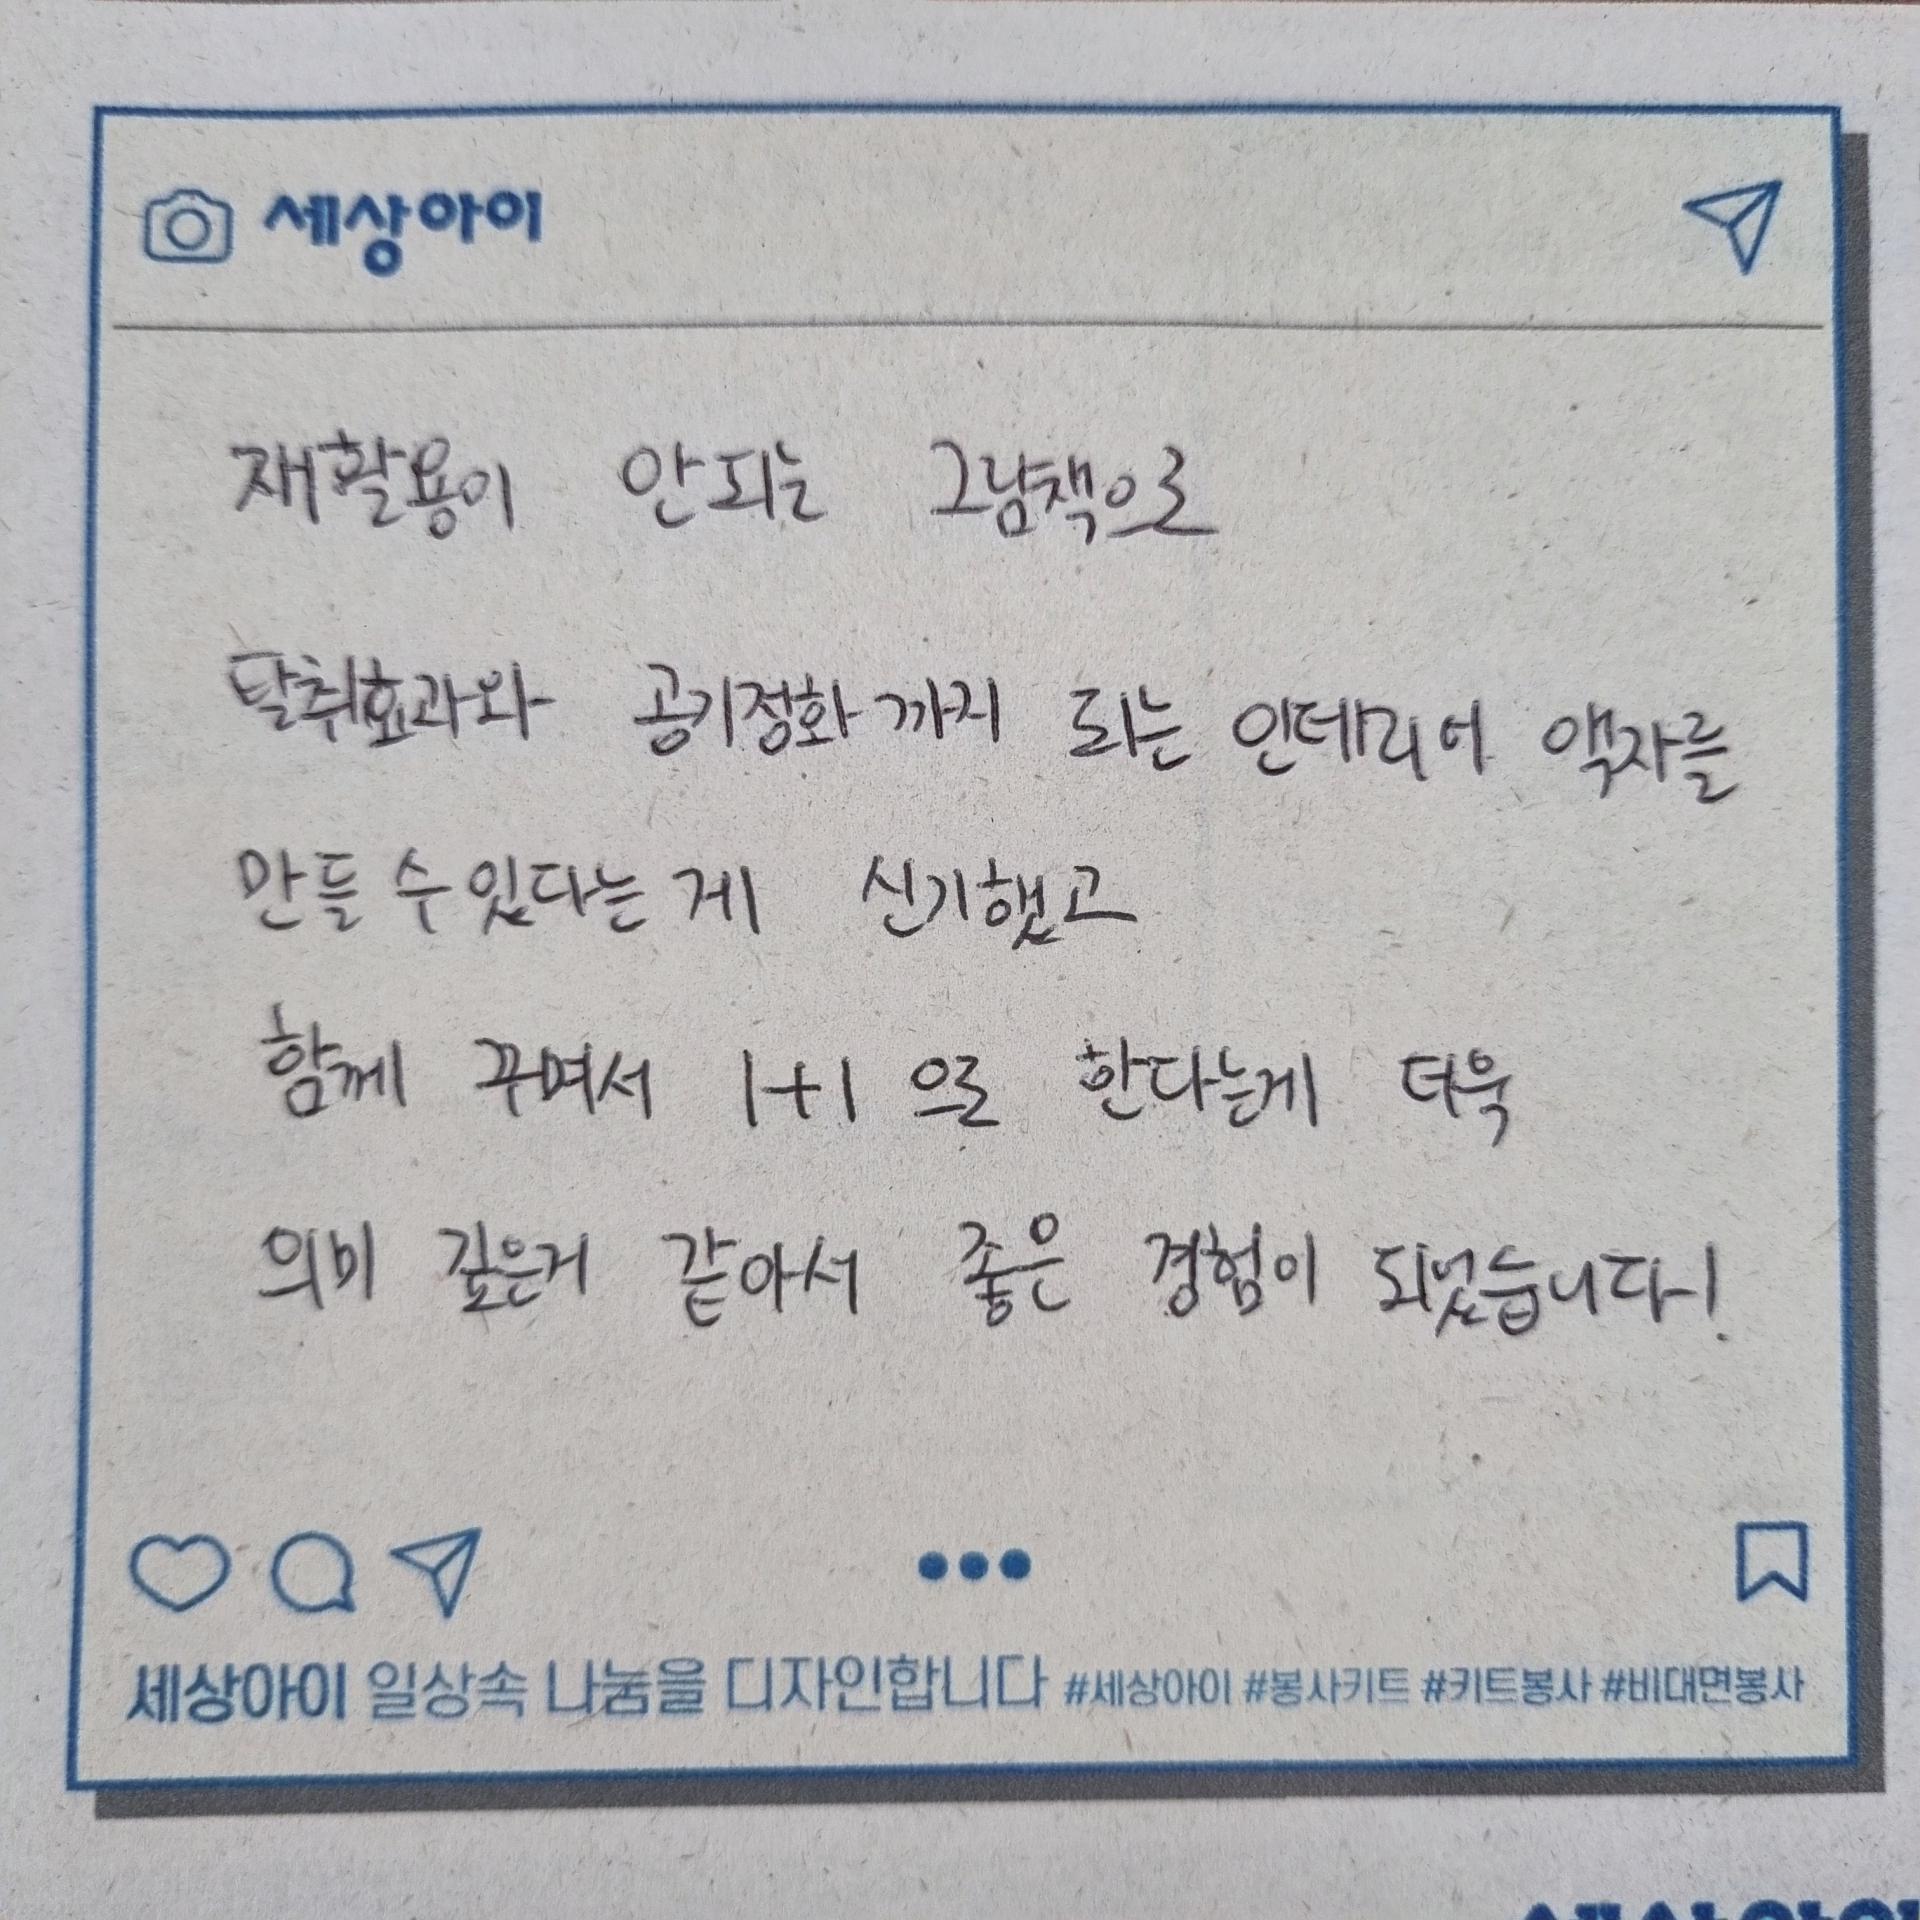 세상아이
재활용이 안되는 그림책으로
탈취효과와 공기정화 까지 되는 인테리어 액자를
만들 수 있다는 게 신기했고
함께 꾸며서 1+1 으로 한다는게 더욱
의미 깊은거 같아서 좋은 경험이 되었습니다!
세상아이 일상속 나눔을 디자인합니다 #세상아이 #봉사키트 #키트봉사 #비대면봉사